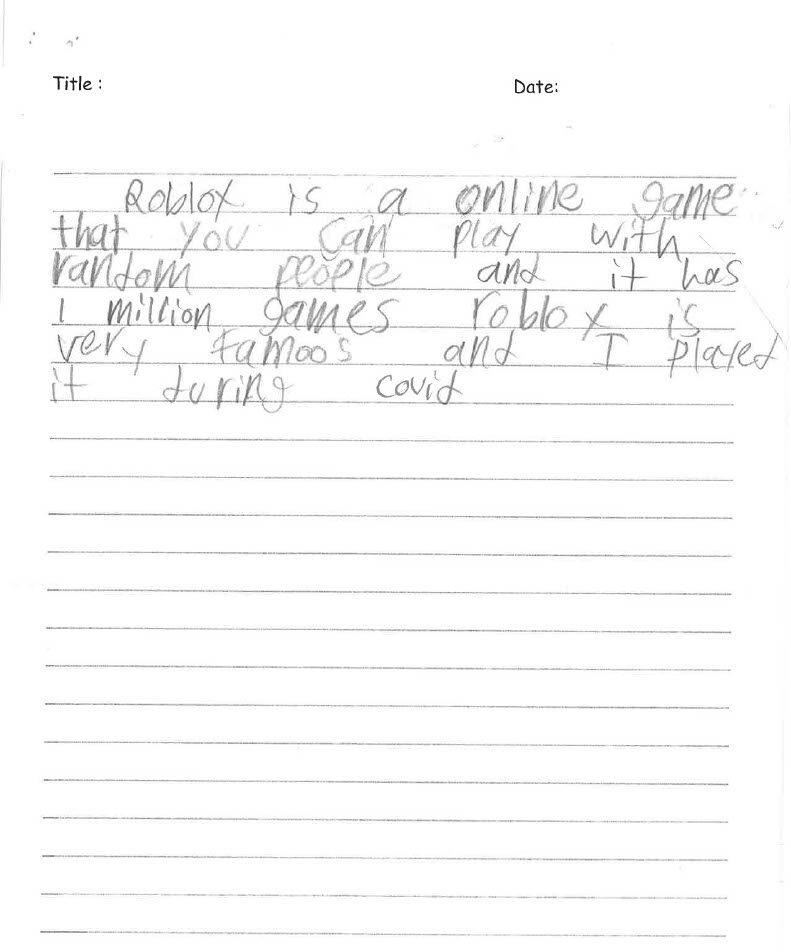 Title :
Date:
Roblox is a online game
that you can play with
random people and it has
1 million games roblox is
very famoos and I played
it during covid